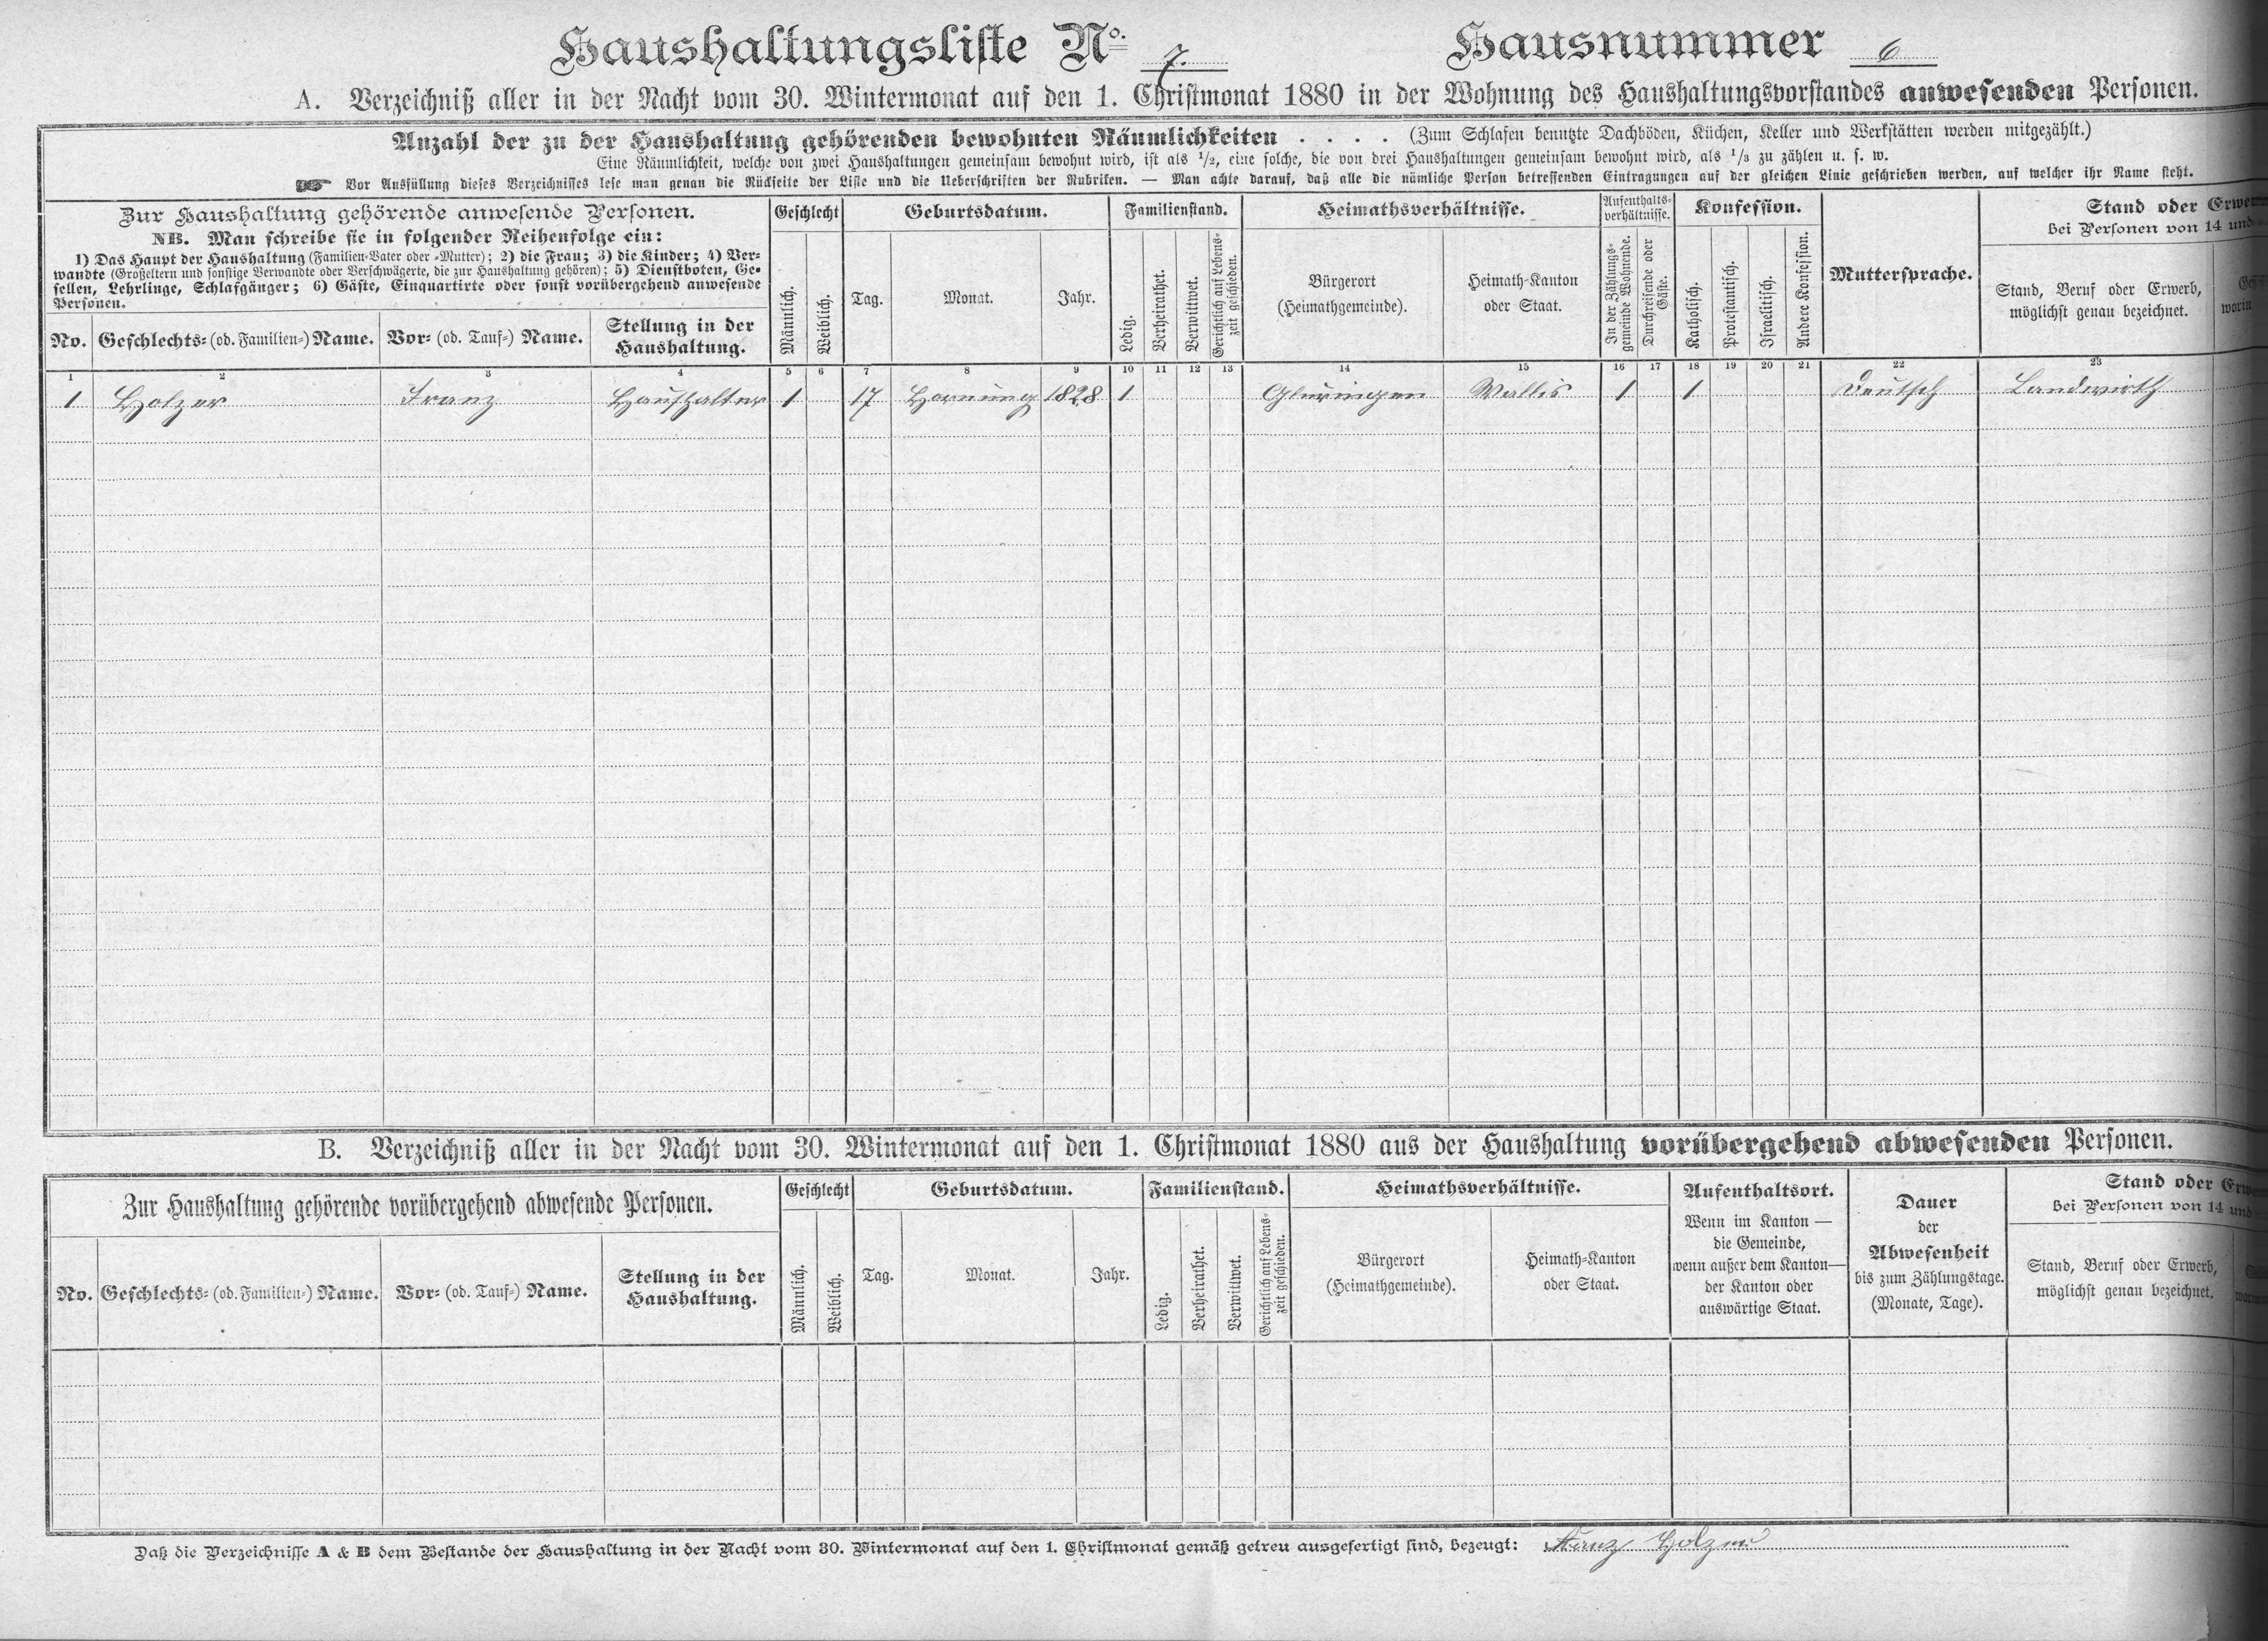 Haushaltungsliste No. 7. Hausnummer 6
A. Verzeichniß aller in der Nacht vom 30. Wintermonat auf den 1. Christmonat 1880 in der Wohnung des Haushaltungsvorstandes anwesenden Personen.
Anzahl der zu der Haushaltung gehörenden bewohnten Räumlichkeiten . . . . (Zum Schlafen benutzte Dachböden, Küchen, Keller und Werkstätten werden mitgezählt.)
Eine Räumlichkeit, welche von zwei Haushaltungen gemeinsam bewohnt wird, ist als 1/2, eine solche, die von drei Haushaltungen gemeinsam bewohnt wird, als 1/3 zu zählen u. s. w.
☞ Vor Ausfüllung dieses Verzeichnisses lese man genau die Rückseite der Liste und die Ueberschriften der Rubriken. — Man achte darauf, daß alle die nämliche Person betreffenden Eintragungen auf der gleichen Linie geschrieben werden, auf welcher ihr Name steht.
Zur Haushaltung gehörende anwesende Personen.
NB. Man schreibe sie in folgender Reihenfolge ein:
1) Das Haupt der Haushaltung (Familien-Vater oder -Mutter); 2) die Frau; 3) die Kinder; 4) Ver-
wandte (Großeltern und sonstige Verwandte oder Verschwägerte, die zur Haushaltung gehören); 5) Dienstboten, Ge-
sellen, Lehrlinge, Schlafgänger; 6) Gäste, Einquartirte oder sonst vorübergehend anwesende
Personen.
No. Geschlechts- (od. Familien-) Name. Vor- (od. Tauf-) Name.
Stellung in der
Haushaltung.
Geschlecht
Männlich.
Weiblich.
Geburtsdatum.
Tag. Monat. Jahr.
Familienstand.
Ledig.
Verheirathet.
Verwittwet.
Gerichtlich auf Lebens-
zeit geschieden.
Heimathsverhältnisse.
Bürgerort
(Heimathgemeinde).
Heimath-Kanton
oder Staat.
Aufenthalts-
verhältnisse.
In der Zählungs-
gemeinde Wohnende.
Durchreisende oder
Gäste.
Konfession.
Katholisch.
Protestantisch.
Israelitisch.
Andere Konfession.
Muttersprache.
Stand oder
bei Personen von 14 und
Stand, Beruf oder Erwerb,
möglichst genau bezeichnet.
worin
1 2 3 4 5 6 7 8 9 10 11 12 13 14 15 16 17 18 19 20 21 22 23
1 Holzer Franz Haushalter 1 17 Hornung 1828 1 Gluringen Wallis 1 1 Deutsch Landwirth
B. Verzeichniß aller in der Nacht vom 30. Wintermonat auf den 1. Christmonat 1880 aus der Haushaltung vorübergehend abwesenden Personen.
Zur Haushaltung gehörende vorübergehend abwesende Personen.
No. Geschlechts- (od. Familien-) Name. Vor- (od. Tauf-) Name.
Stellung in der
Haushaltung.
Geschlecht
Männlich.
Weiblich.
Geburtsdatum.
Tag. Monat. Jahr.
Familienstand.
Ledig.
Verheirathet.
Verwittwet.
Gerichtlich auf Lebens-
zeit geschieden.
Heimathsverhältnisse.
Bürgerort
(Heimathgemeinde).
Heimath-Kanton
oder Staat.
Aufenthaltsort.
Wenn im Kanton —
die Gemeinde,
wenn außer dem Kanton—
der Kanton oder
auswärtige Staat.
Dauer
der
Abwesenheit
bis zum Zählungstage.
(Monate, Tage).
Stand oder
bei Personen von 14 und
Stand, Beruf oder Erwerb,
möglichst genau bezeichnet.
Daß die Verzeichnisse A & B dem Bestande der Haushaltung in der Nacht vom 30. Wintermonat auf den 1. Christmonat gemäß getreu ausgefertigt sind, bezeugt: Franz Holzer